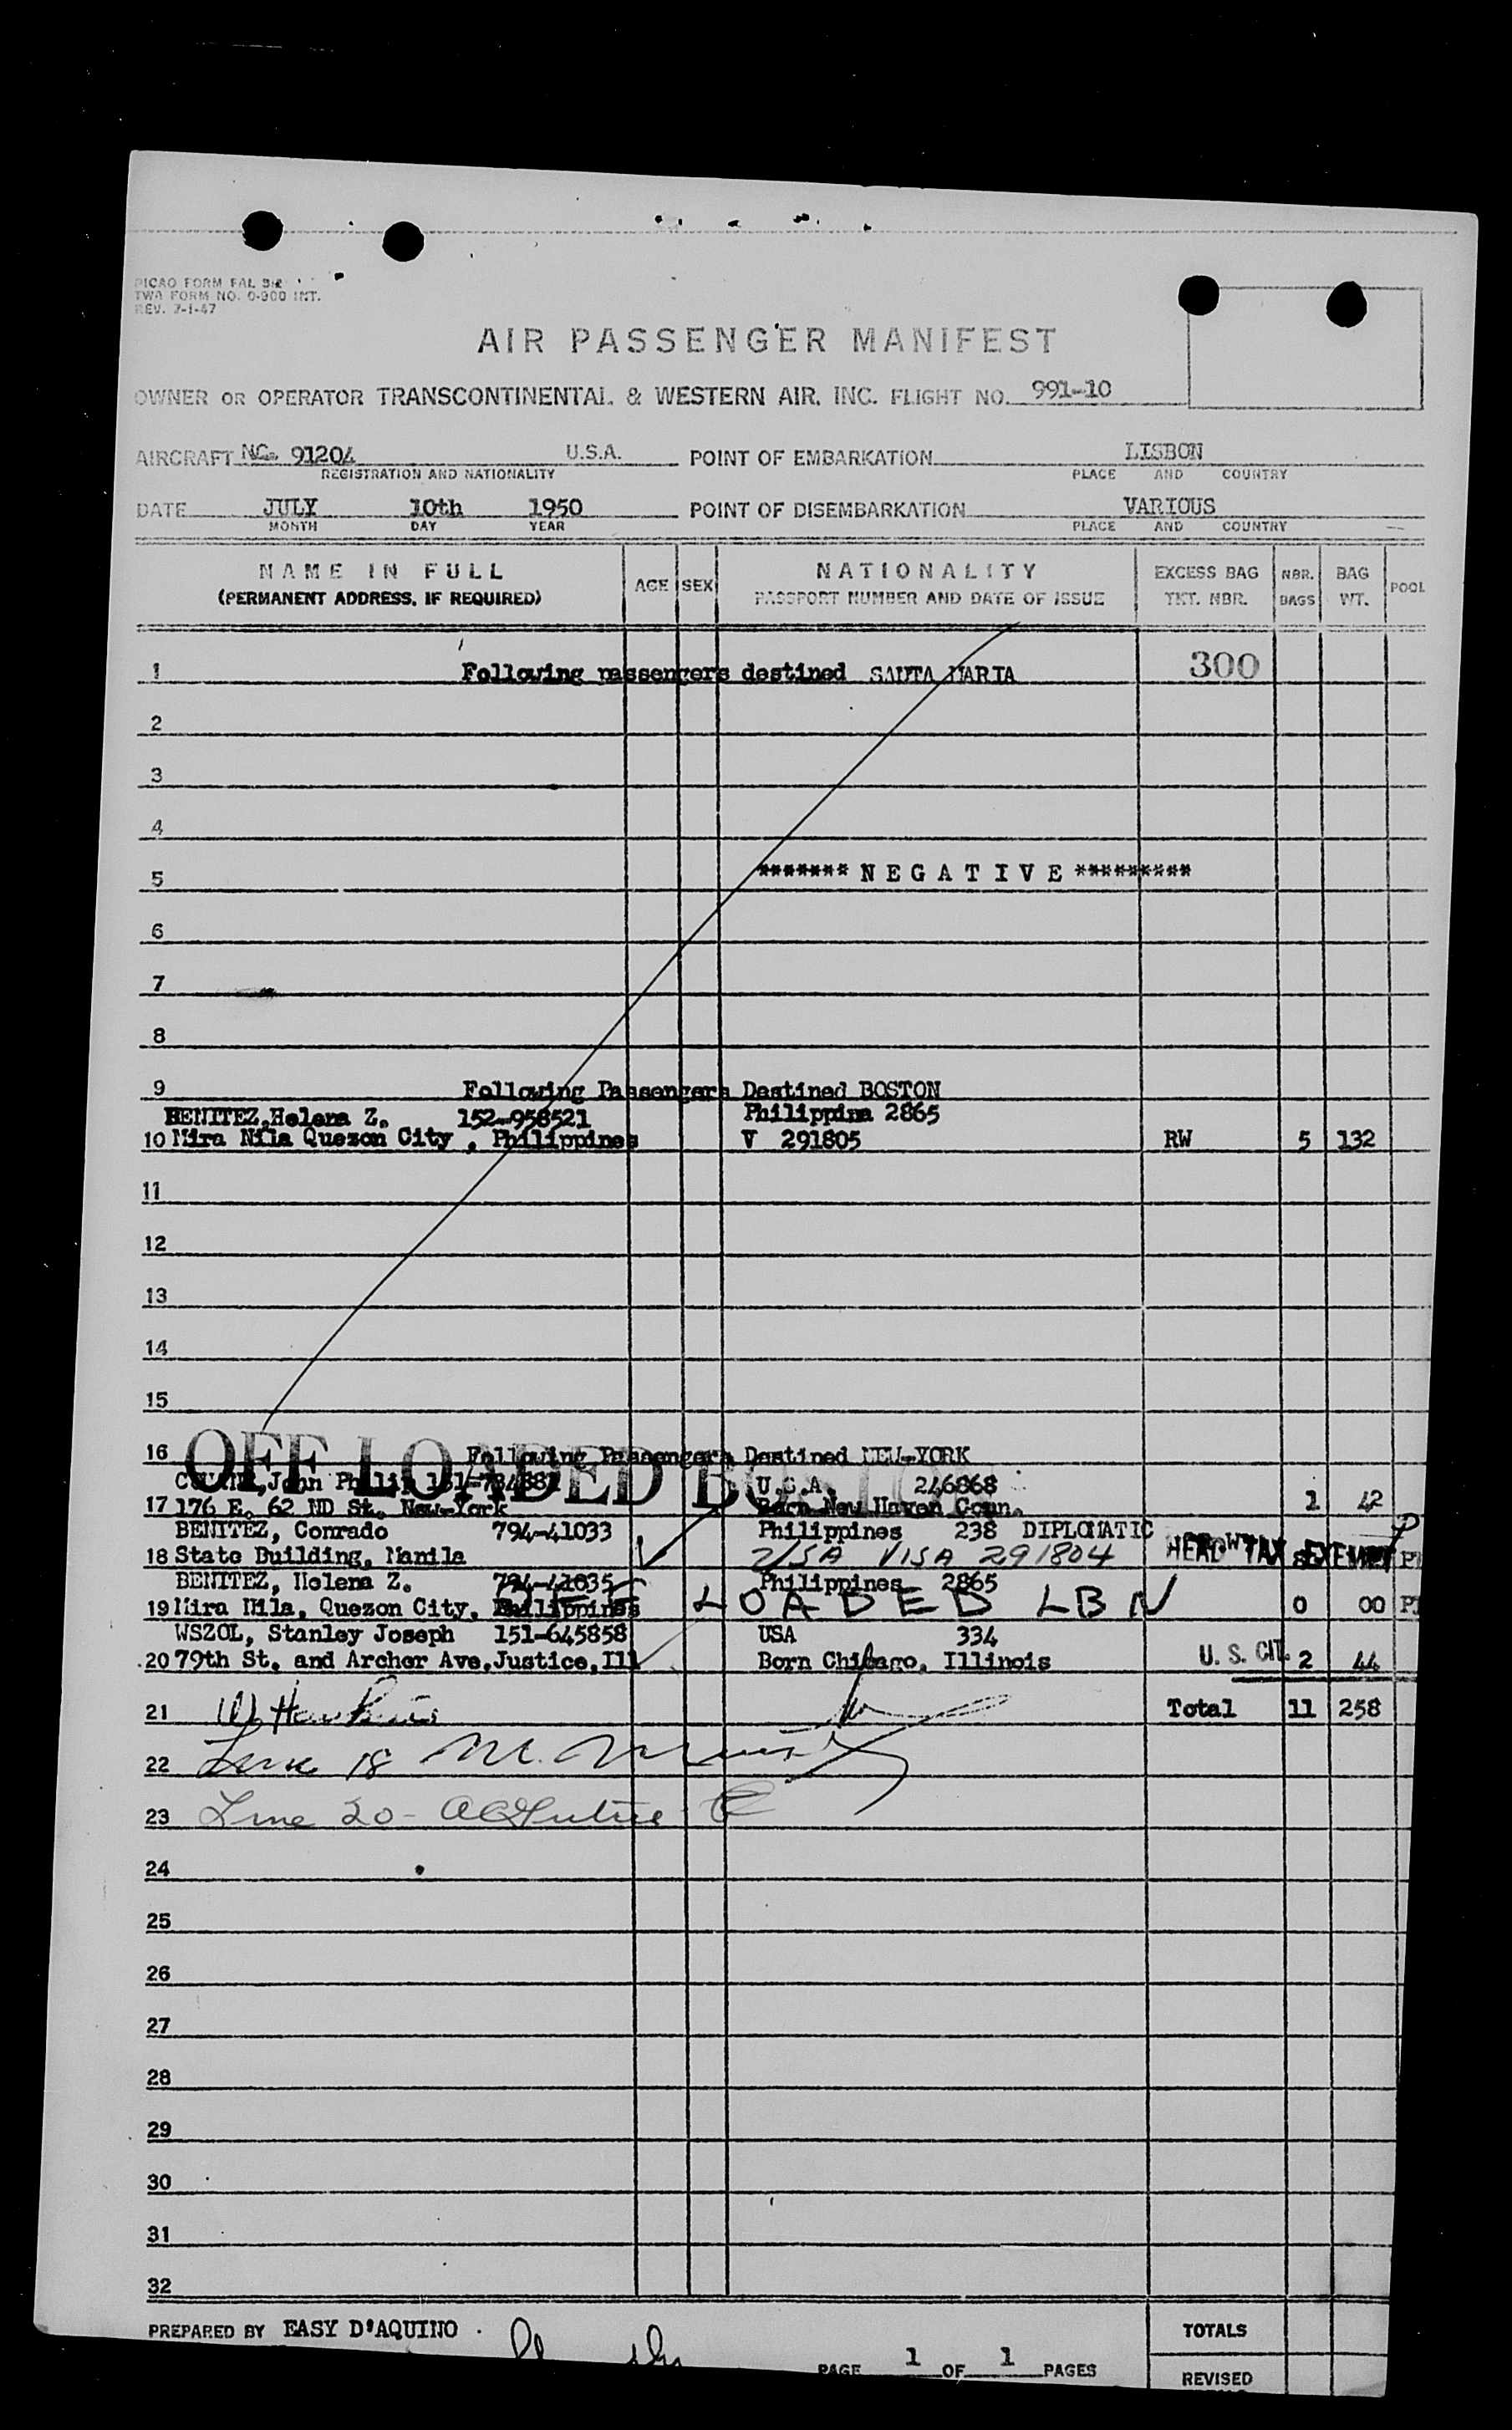 PICAO FORM FAL
TWA FORM NO. 0-900 INT.
REV. 7-1-47
AIR PASSENGER MANIFEST
OWNER OR OPERATOR TRANSCONTINENTAL & WESTERN AIR, INC. FLIGHT NO. 991-10
AIRCRAFT NC. 91204 U.S.A. POINT OF EMBARKATION LISBON
REGISTRATION AND NATIONALITY PLACE AND COUNTRY
DATE JULY 10th 1950 POINT OF DISEMBARKATION VARIOUS
MONTH DAY YEAR PLACE AND COUNTRY
NAME IN FULL AGE SEX NATIONALITY EXCESS BAG NBR. BAG POOL
(PERMANENT ADDRESS, IF REQUIRED) PASSPORT NUMBER AND DATE OF ISSUE TKT. NBR. BAGS WT.
1 Following passengers destined SANTA MARIA 300
2
3
4
5 ******* N E G A T I V E *********
6
7
8
9 Following Passengers Destined BOSTON
BENITEZ,Helena Z. 152-958521 Philippina 2865
10 Mira Nila Quezon City , Philippines V 291805 RW 5 132
11
12
13
14
15
16 Following Passengers Destined NEW-YORK
OFF LOADED BOSTON
John Philip U.S.A. 246868
17 176 E. 62 ND St. New-York Born New Haven Conn. 1 42
BENITEZ, Conrado 794-41033 Philippines 238 DIPLOMATIC
18 State Building, Manila USA VISA 291804 HEAD TAX EXEMPT
BENITEZ, Helena Z. 794-41035 Philippines 2865
19 Mira Nila, Quezon City, Philippines 0 00
OFF LOADED LBN
WSZOL, Stanley Joseph 151-645858 USA 334
20 79th St. and Archer Ave,Justice,Ill Born Chicago, Illinois U. S. CIT. 2 44
21 Total 11 258
22 Line 18 M.
23 Line 20 -
24
25
26
27
28
29
30
31
32
PREPARED BY EASY D'AQUINO TOTALS
PAGE 1 OF 1 PAGES REVISED